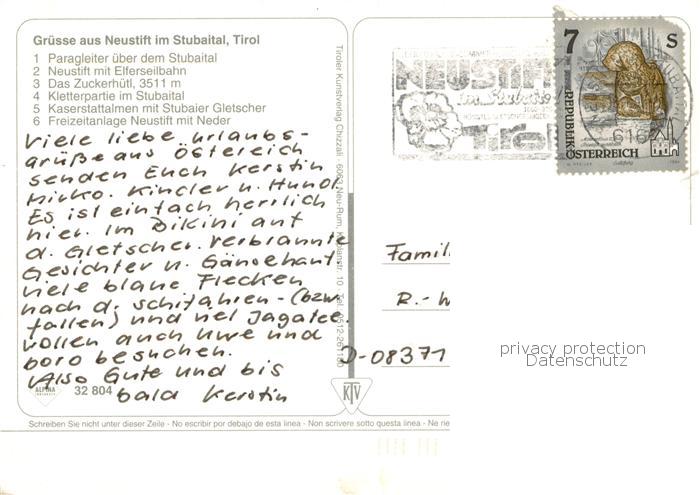 Grüsse aus Neustift im Stubaital, Tirol
1 Paragleiter über dem Stubaital
2 Neustift mit Elferseilbahn
3 Das Zuckerhütl, 3511 m
4 Kletterpartie im Stubaital
5 Kaserstattalmen mit Stubaier Gletscher
6 Freizeitanlage Neustift mit Neder
Viele liebe Urlaubs-
grüße aus Östereich
senden Euch Kerstin
Mirko. Kinder u. Hund.
Es ist einfach herrlich
hier. Im Bikini auf
d. Gletscher. Verbrannte
Gesichter u. Gänsehaut
viele blaue Flecken
nach d. Schifahren - (bzw.
fallen) und viel Jagatee.
Wollen auch Uwe und
Doro besuchen.
Also Gute und bis
bald Kerstin
ALPINA
32 804
Tiroler Kunstverlag Chizzali
KTV
Schreiben Sie nicht unter dieser Zeile - No escribir por debajo de esta linea - Non scrivere sotto questa linea - Ne
NEUSTIFT
im Stubaital
Tirol
7 S
REPUBLIK
ÖSTERREICH
616
Famil
R.- W
D-08371
privacy protection
Datenschutz